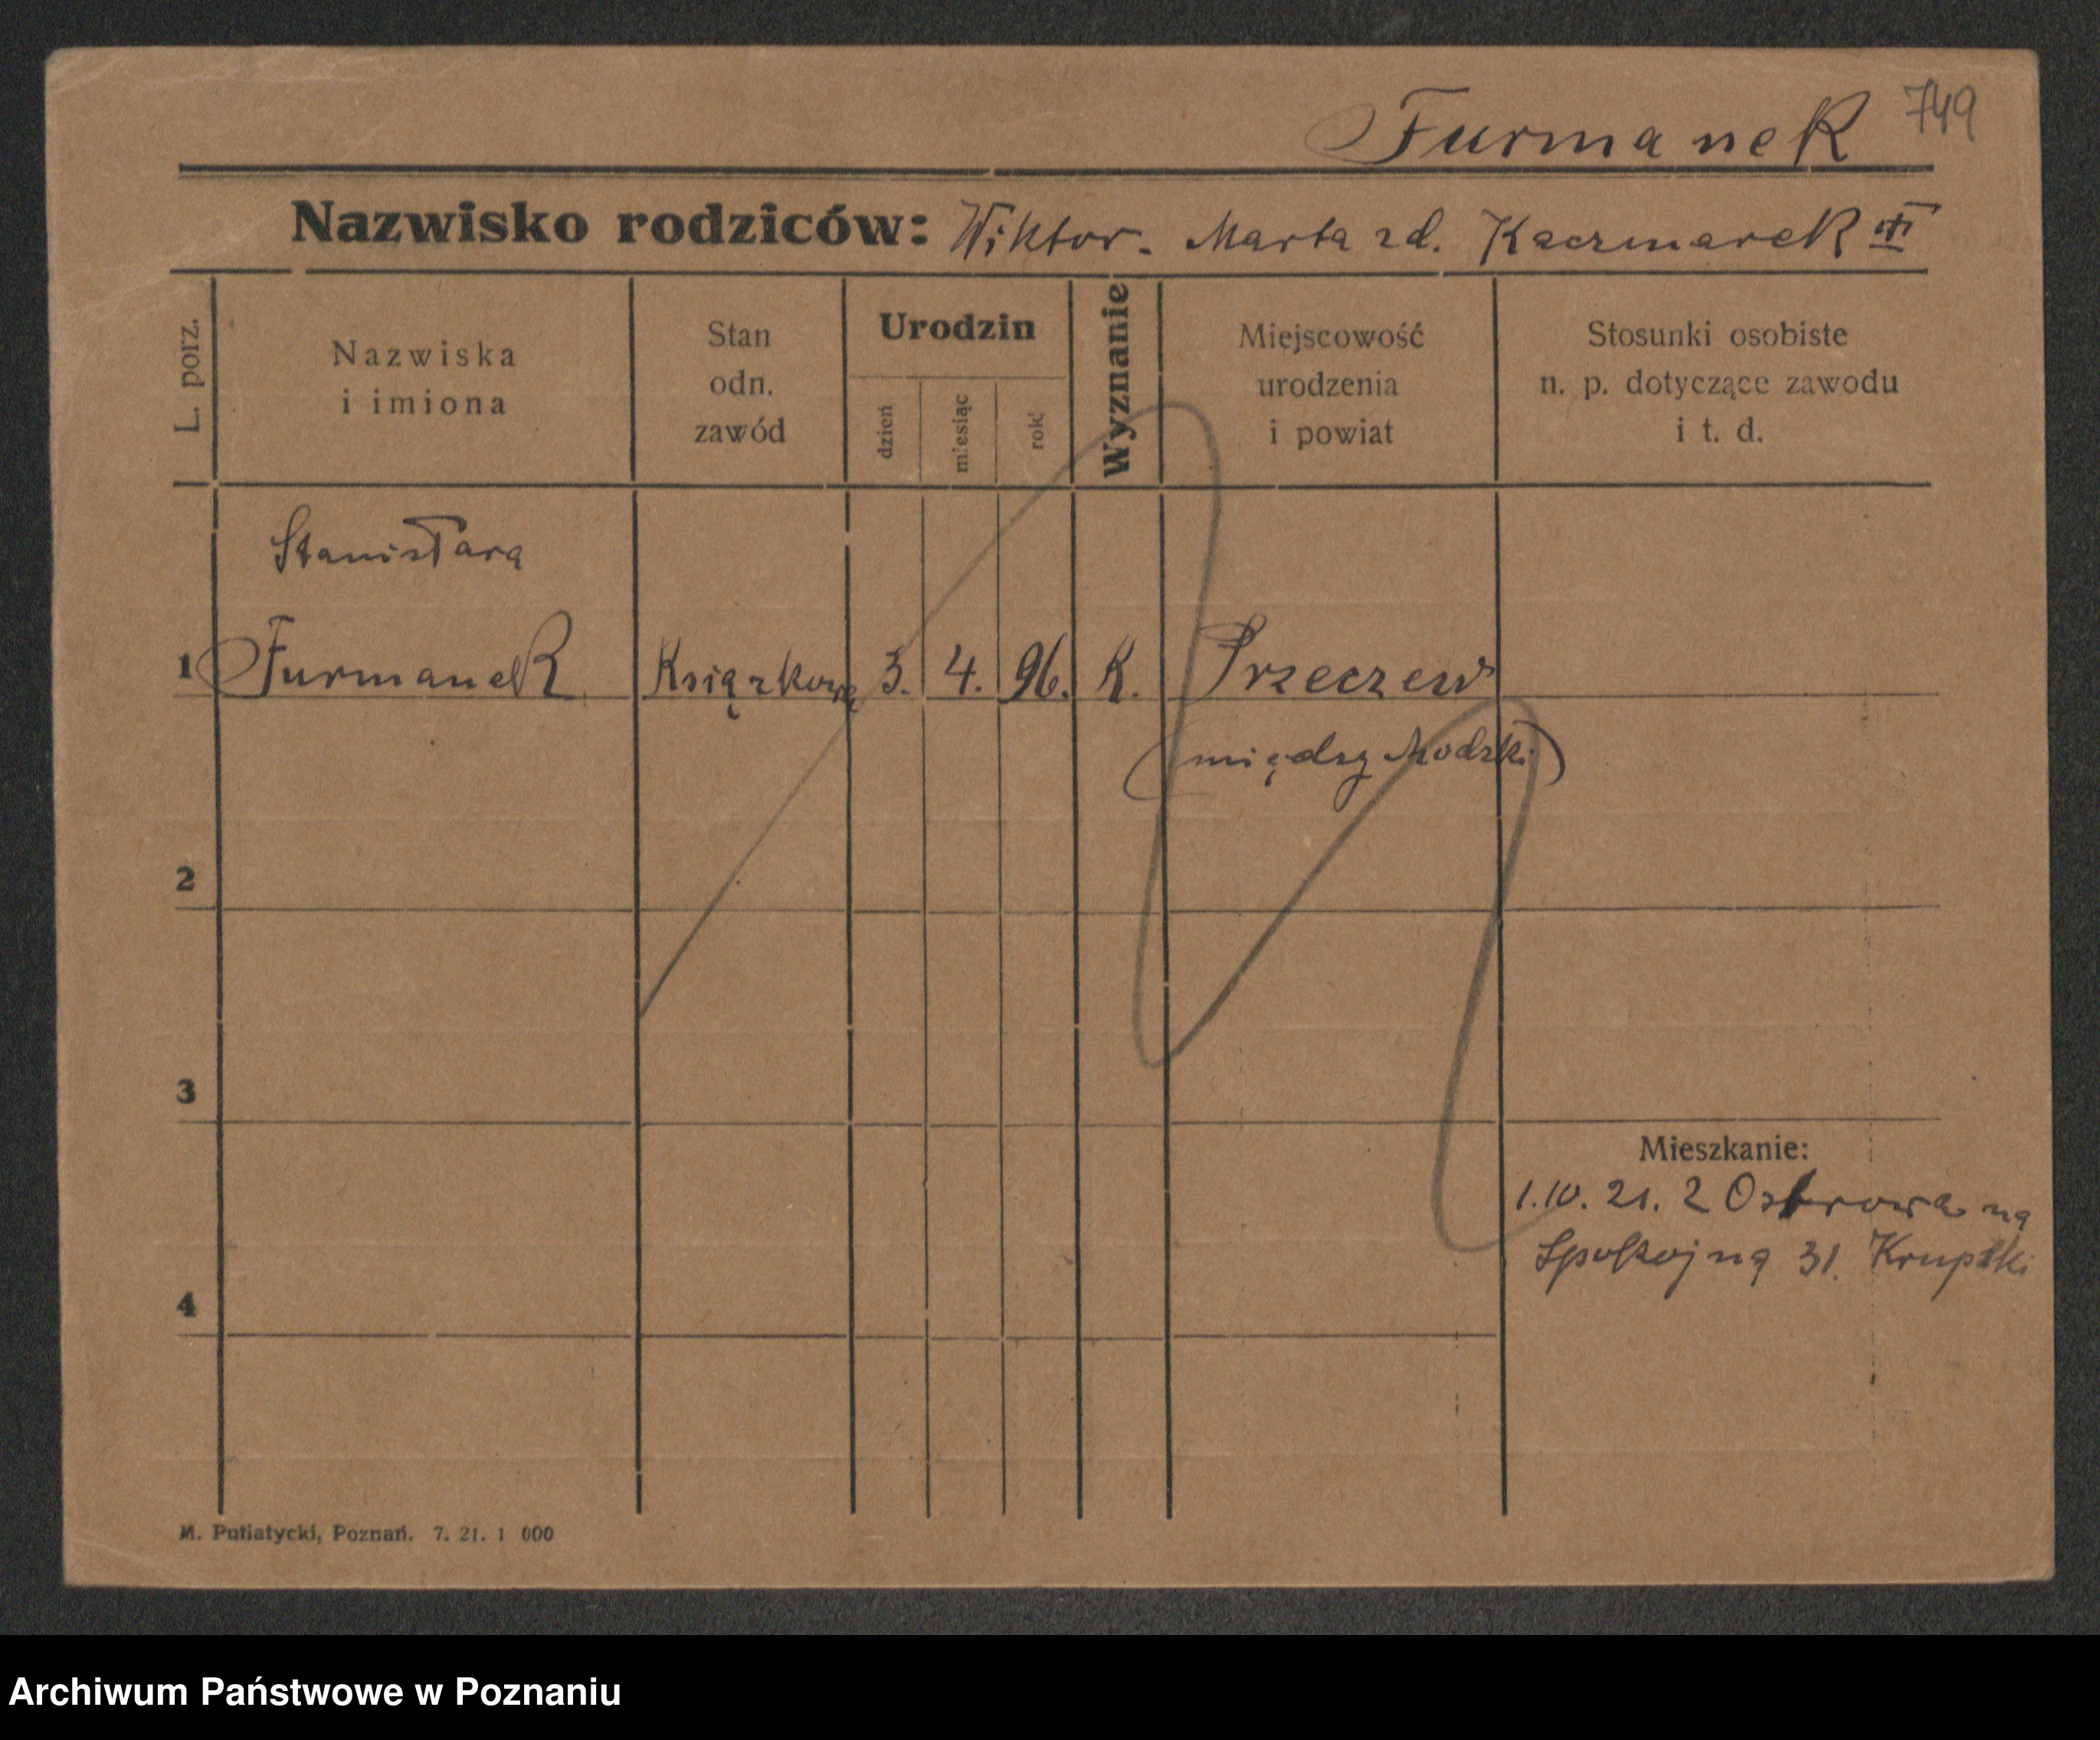 749
Furmanek
Nazwisko rodziców: Wiktor. Marta zd. Kaczmarek
L. porz.
Nazwiska i imiona
Stan odn. zawód
Urodzin
dzień
miesiąc
rok
Wyznanie
Miejscowość urodzenia i powiat
Stosunki osobiste n. p. dotyczące zawodu i t. d.
Stanisława
1 Furmanek Książkowa 3. 4. 96. K. Przeczew
(między
2
3
Mieszkanie:
1.10.21. z Ostrowa na
Spokojną 31. Krupski
4
M. Putiatycki, Poznań. 7. 21. 1 000
Archiwum Państwowe w Poznaniu